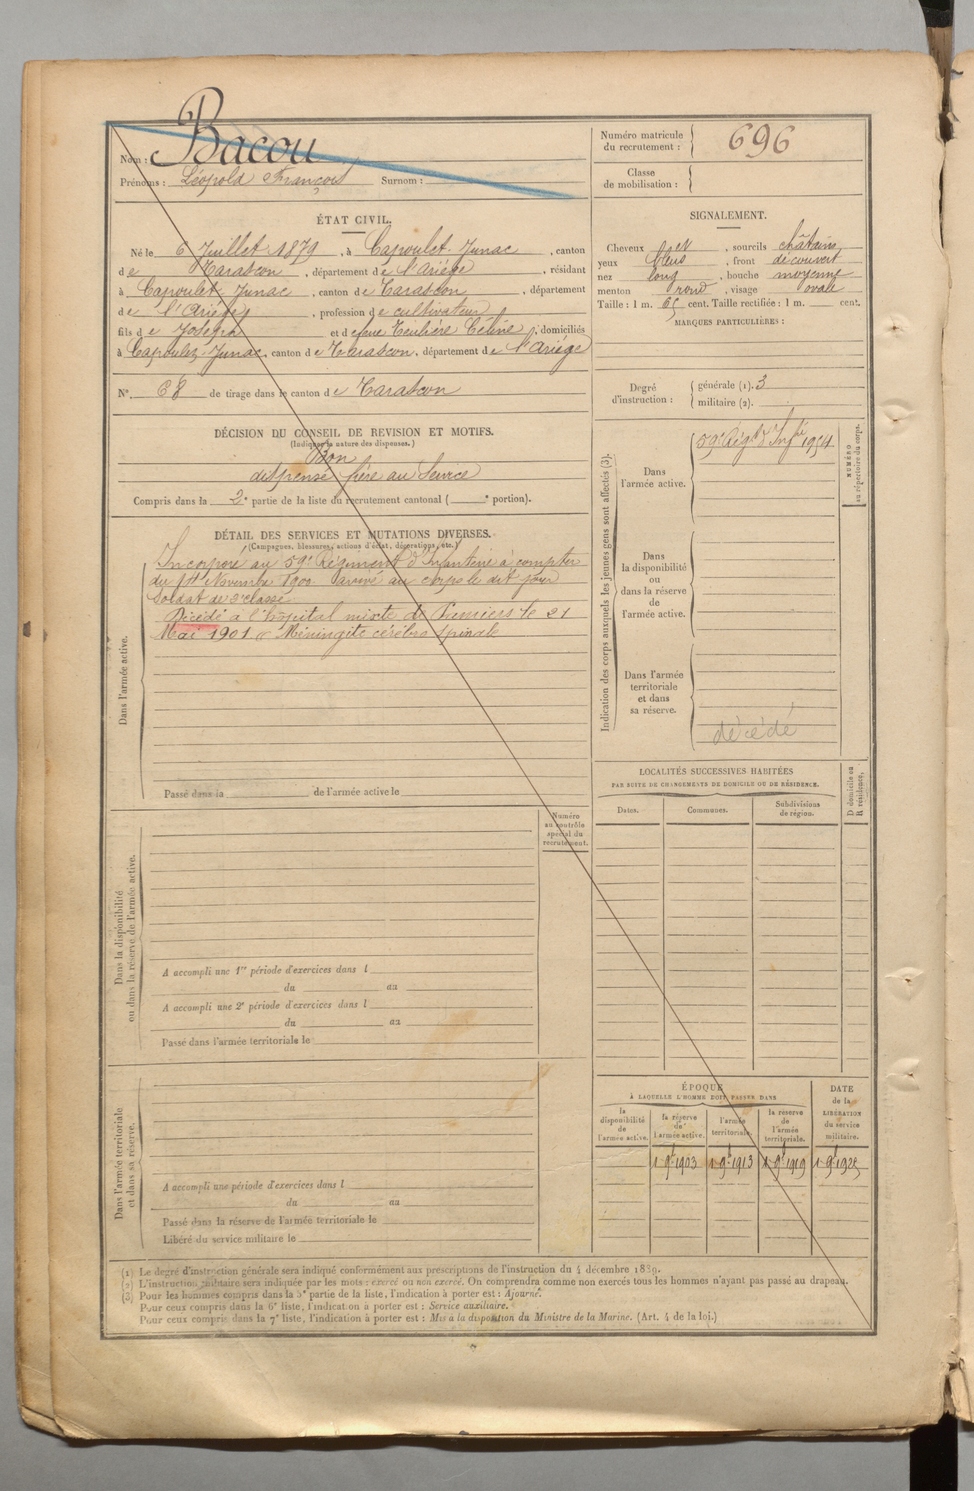 Nom : Bacou
Prénoms : Léopold François Surnom :
Numéro matricule du recrutement : 696
Classe de mobilisation :
ÉTAT CIVIL.
Né le 6 Juillet 1879, à Capoulet-Junac, canton
de Tarascon, département de l'Ariège, résidant
à Capoulet-Junac, canton de Tarascon, département
de l'Ariège, profession de cultivateur
fils de Joseph et de feue Teulière Céline, domiciliés
à Capoulet-Junac, canton de Tarascon, département de l'Ariège
N° 68 de tirage dans le canton de Tarascon
SIGNALEMENT.
Cheveux, sourcils châtains
yeux bleus, front découvert
nez long, bouche moyenne
menton rond, visage ovale
Taille : 1 m. 65 cent. Taille rectifiée : 1 m. cent.
MARQUES PARTICULIÈRES :
Degré d'instruction :
générale (1). 3
militaire (2).
DÉCISION DU CONSEIL DE REVISION ET MOTIFS.
(Indiquer la nature des dispenses.)
Bon
dispensé frère au Service
Compris dans la 2e partie de la liste du recrutement cantonal ( e portion).
DÉTAIL DES SERVICES ET MUTATIONS DIVERSES.
(Campagnes, blessures, actions d'éclat, décorations, etc.)
Dans l'armée active.
Incorporé au 59e Régiment d'Infanterie à compter
du 14 Novembre 1900. Arrivé au corps le dit jour
Soldat de 2e classe
Décédé à l'hôpital mixte de Pamiers le 21
Mai 1901 Méningite cérébro spinale
Passé dans la de l'armée active le
Indication des corps auxquels les jeunes gens sont affectés (3).
Dans l'armée active.
59e Régt d'Infie 1954
NUMÉRO au répertoire du corps.
Dans la disponibilité ou dans la réserve de l'armée active.
Dans l'armée territoriale et dans sa réserve.
décédé
LOCALITÉS SUCCESSIVES HABITÉES
PAR SUITE DE CHANGEMENTS DE DOMICILE OU DE RÉSIDENCE.
Dates. Communes. Subdivisions de région. D domicile ou R résidence.
Dans la disponibilité ou dans la réserve de l'armée active.
Numéro au contrôle spécial du recrutement.
A accompli une 1re période d'exercices dans l
du au
A accompli une 2e période d'exercices dans l
du au
Passé dans l'armée territoriale le
Dans l'armée territoriale et dans sa réserve.
A accompli une période d'exercices dans l
du au
Passé dans la réserve de l'armée territoriale le
Libéré du service militaire le
ÉPOQUE
À LAQUELLE L'HOMME DOIT PASSER DANS
la disponibilité de l'armée active.
la réserve de l'armée active.
l'armée territoriale.
la réserve de l'armée territoriale.
DATE de la LIBÉRATION du service militaire.
1 9b 1903 1 9b 1913 1 9b 1919 1 9b 1925
(1) Le degré d'instruction générale sera indiqué conformément aux prescriptions de l'instruction du 4 décembre 1889.
(2) L'instruction militaire sera indiquée par les mots : exercé ou non exercé. On comprendra comme non exercés tous les hommes n'ayant pas passé au drapeau.
(3) Pour les hommes compris dans la 5e partie de la liste, l'indication à porter est : Ajourné.
Pour ceux compris dans la 6e liste, l'indication à porter est : Service auxiliaire.
Pour ceux compris dans la 7e liste, l'indication à porter est : Mis à la disposition du Ministre de la Marine. (Art. 4 de la loi.)